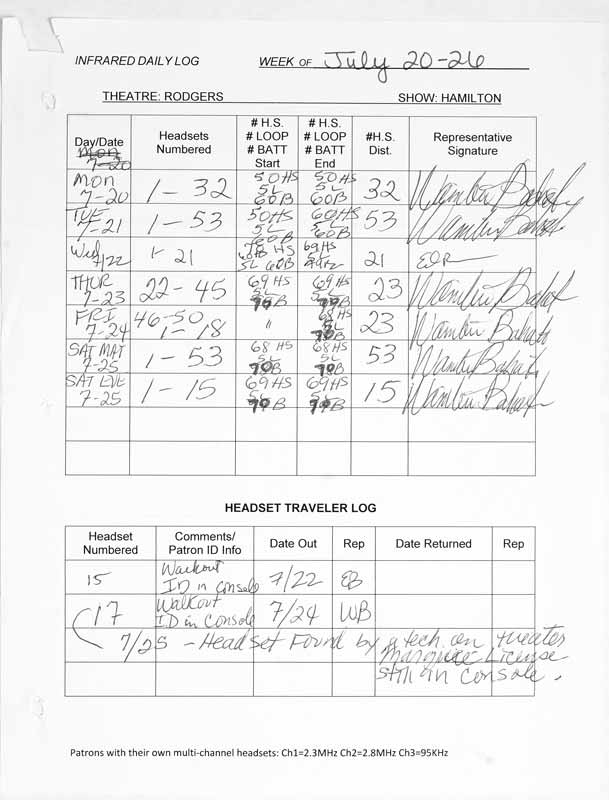 INFRARED DAILY LOG WEEK OF July 20-26
THEATRE: RODGERS SHOW: HAMILTON
Day/Date Headsets Numbered # H.S. # LOOP # BATT Start # H.S. # LOOP # BATT End #H.S. Dist. Representative Signature
MON 7-20 1-32 50HS 5L 60B 50HS 5L 60B 32
TUE 7-21 1-53 50HS 5L 60B 60HS 5L 60B 53
Wed 7/22 1-21 5L 60B 69HS 21
THUR 7-23 22-45 69HS 5L 70B 69HS 5L 70B 23
FRI 7-24 46-50 1-18 " 68HS 5L 70B 23
SAT MAT 7-25 1-53 68HS 5L 70B 68HS 5L 70B 53
SAT EVE 7-25 1-15 69HS 5L 70B 69HS 5L 70B 15
HEADSET TRAVELER LOG
Headset Numbered Comments/ Patron ID Info Date Out Rep Date Returned Rep
15 Walkout ID in console 7/22 EB
17 Walkout ID in console 7/24 WB
7/25 - Headset Found by a tech. on theater
Marquee License
still in console.
Patrons with their own multi-channel headsets: Ch1=2.3MHz Ch2=2.8MHz Ch3=95KHz